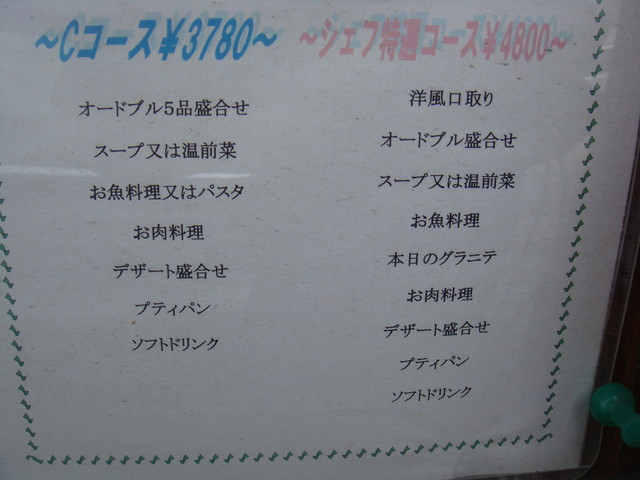 ～Cコース￥3780～
オードブル5品盛合せ
スープ又は温前菜
お魚料理又はパスタ
お肉料理
デザート盛合せ
プティパン
ソフトドリンク
～シェフ特選コース￥4800～
洋風口取り
オードブル盛合せ
スープ又は温前菜
お魚料理
本日のグラニテ
お肉料理
デザート盛合せ
プティパン
ソフトドリンク